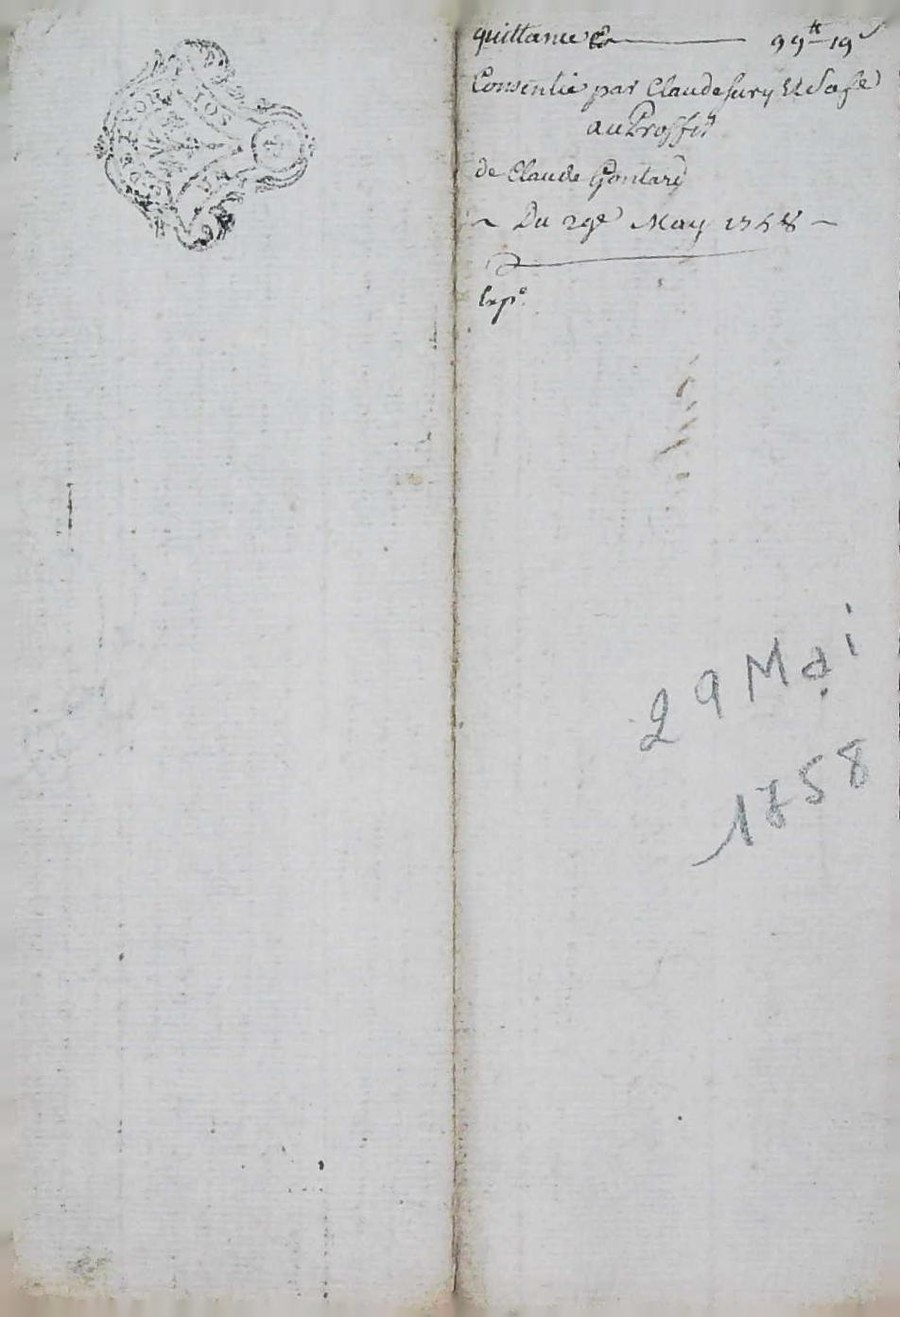 quittance de 99ᵗᵗ 19ˢ
Consentie par Claude Jury Et Sa fᵉ
au Proffit
de Claude Gontard
~ Du 29ᵉ May 1758 ~
Expᵉ
29 Mai
1758